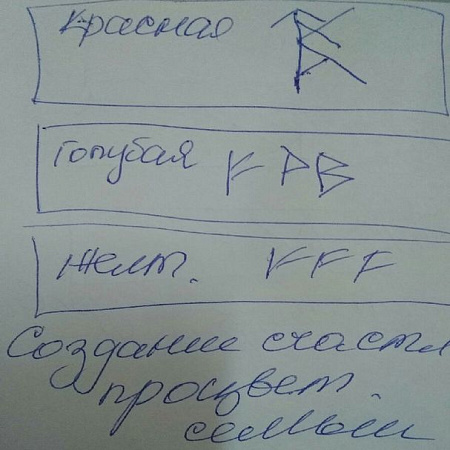 Красная
Голубая ᚠ ᚹ ᛒ
Желт. ᚠ ᚠ ᚠ
Создание счастл
процвет.
семьи